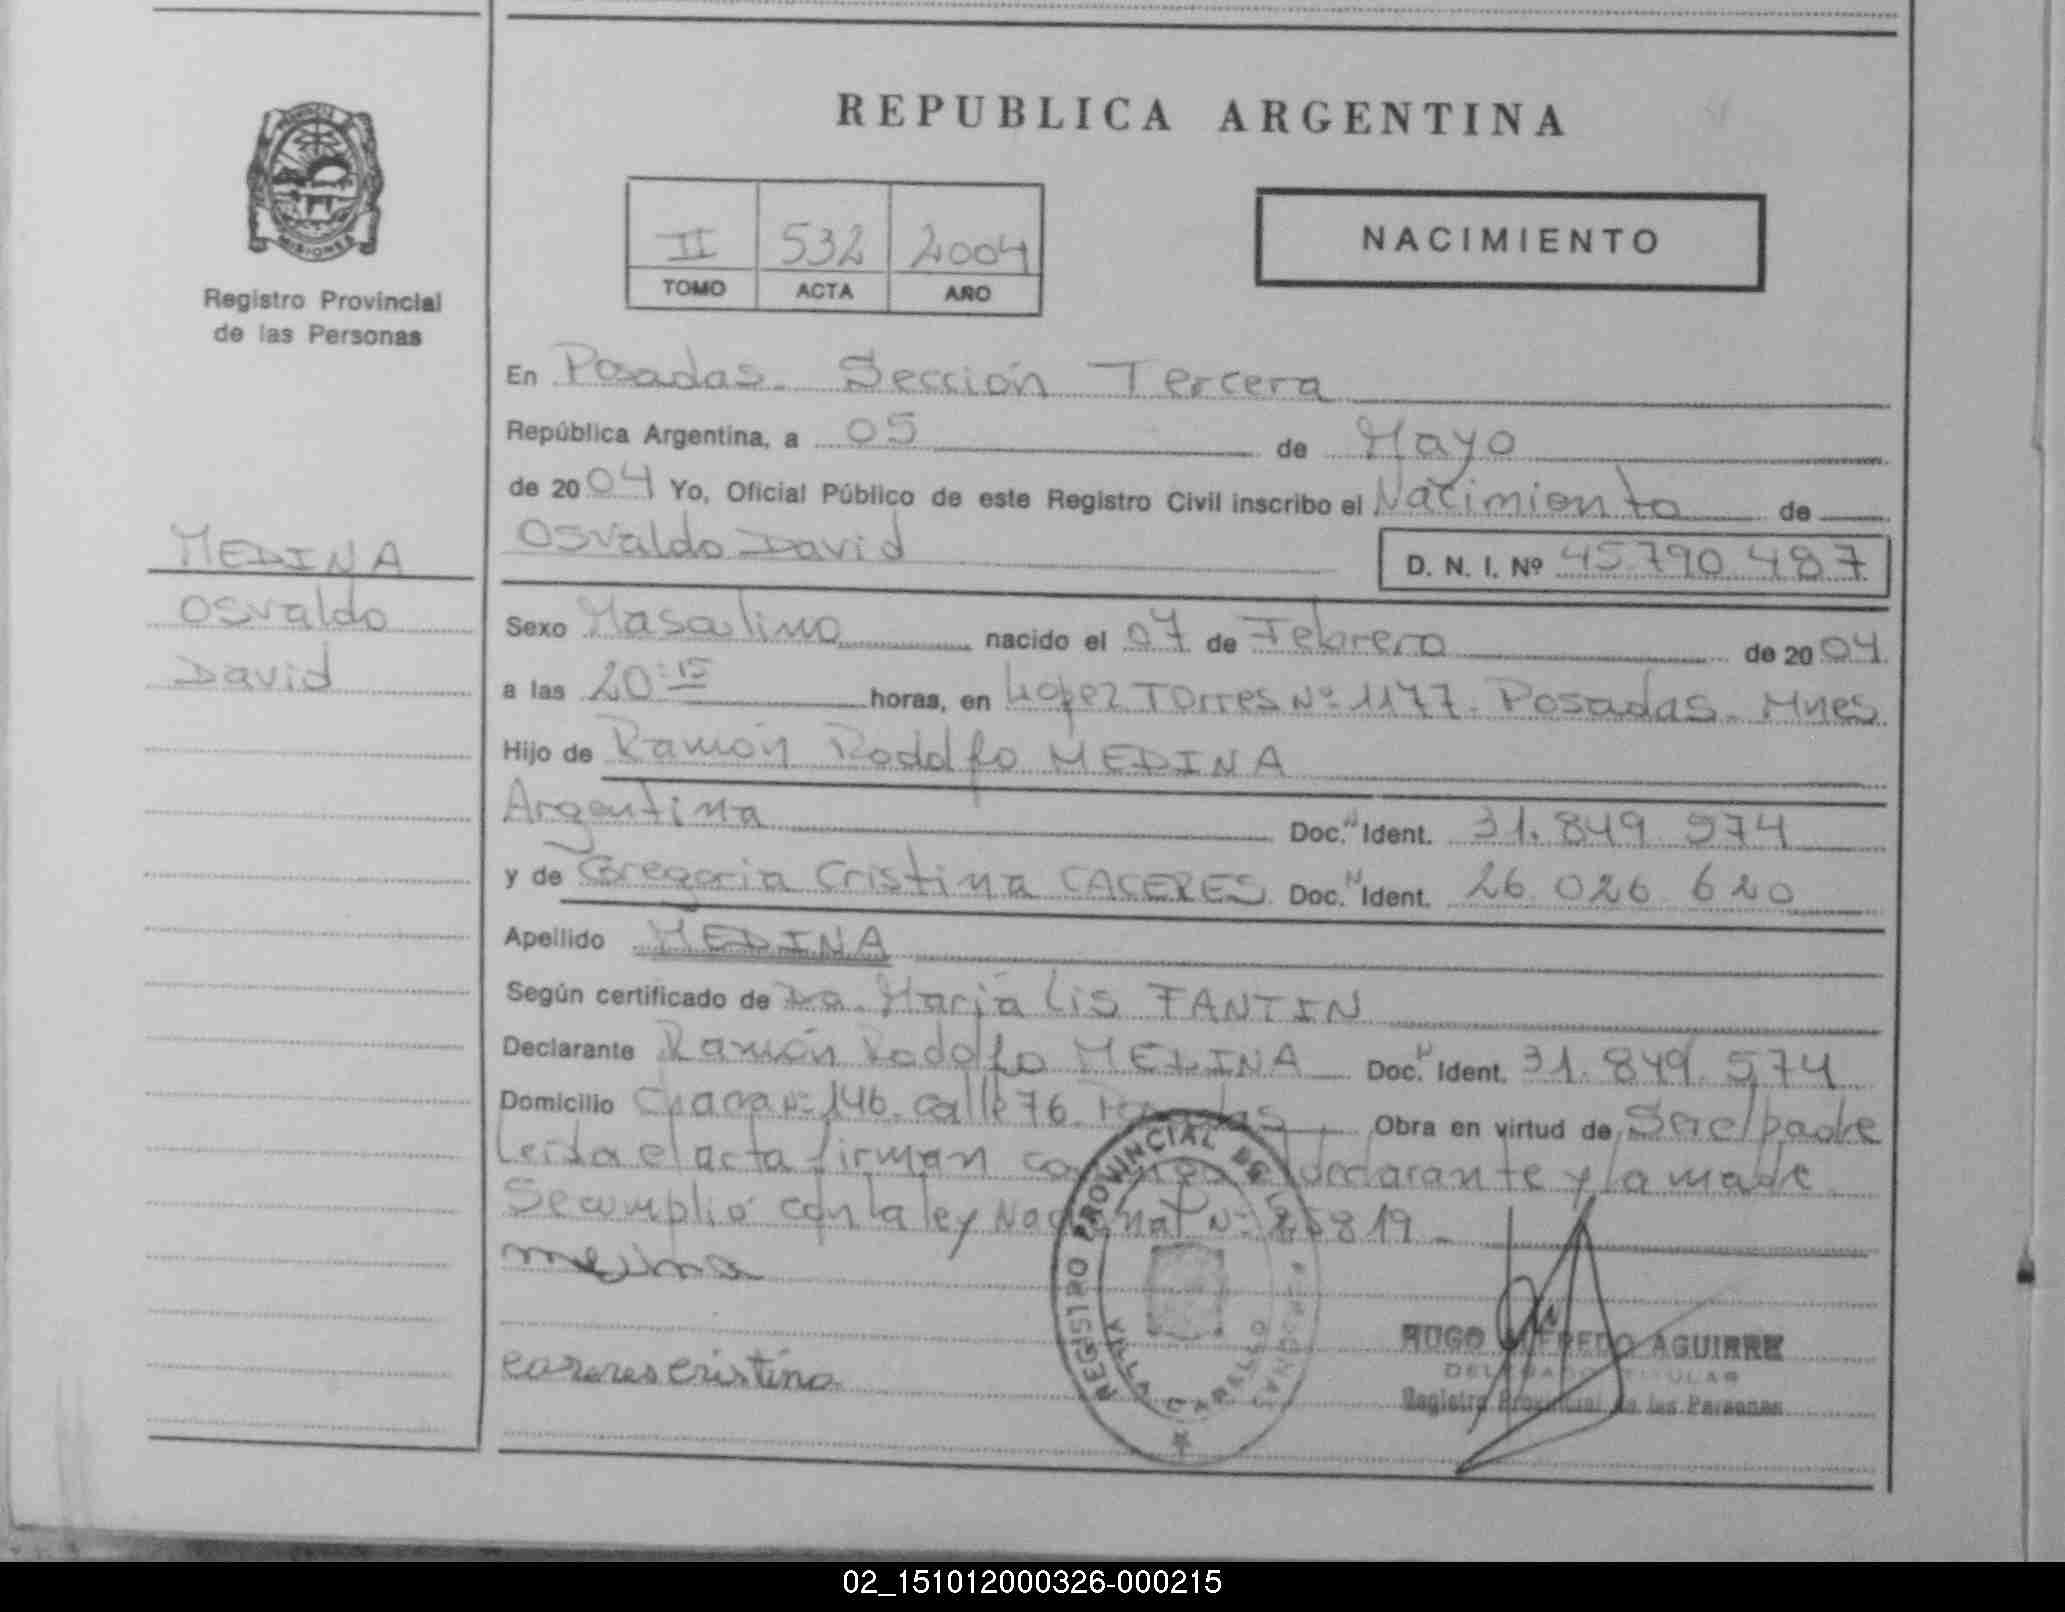 REPUBLICA ARGENTINA
MISIONES
Registro Provincial
de las Personas
II 532 2004
TOMO ACTA AÑO
NACIMIENTO
En Posadas. Sección Tercera
República Argentina, a 05 de Mayo
de 2004 Yo, Oficial Público de este Registro Civil inscribo el Nacimiento de
Osvaldo David D. N. I. Nº 45.790.487
MEDINA
Osvaldo
David
Sexo Masculino nacido el 07 de Febrero de 2004.
a las 20:15 horas, en López Torres Nº 1177. Posadas. Mnes.
Hijo de Ramón Rodolfo MEDINA
Argentina Doc. N Ident. 31.849.574
y de Gregoria Cristina CACERES Doc. N Ident. 26.026.620
Apellido MEDINA
Según certificado de Dra. María Lis FANTIN
Declarante Ramón Rodolfo MEDINA Doc. N Ident. 31.849.574
Domicilio Chacra Nº 146. calle 76. Posadas Obra en virtud de Ser el padre
Leída el acta firman conmigo el declarante y la madre.
Se cumplió con la ley Nacional Nº 25819.
medina
caseres cristina
REGISTRO PROVINCIAL DE LAS PERSONAS
VILLA CABELLO
HUGO ALFREDO AGUIRRE
DELEGADO TITULAR
Registro Provincial de las Personas
02_151012000326-000215